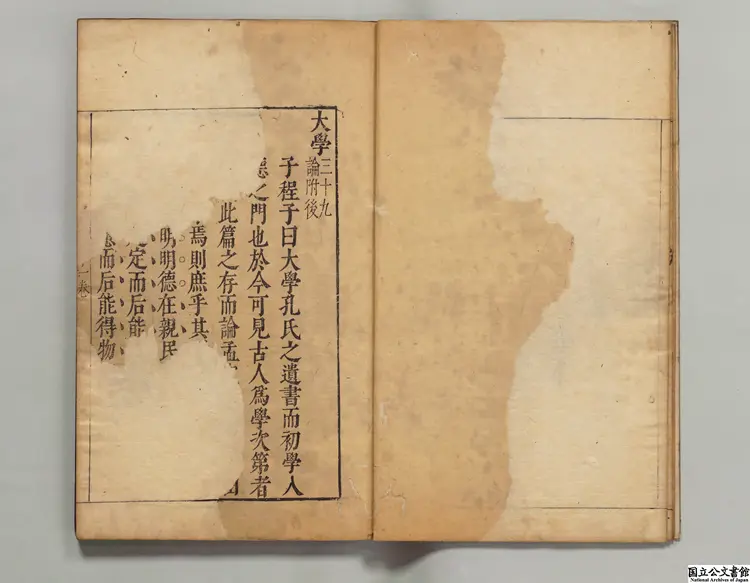 大學
三十九
論附後
子程子曰大學孔氏之遺書而初學入
之門也於今可見古人爲學次第者
此篇之存而論孟
焉則庶乎其
明明德在親民
定而后能
而后能得物
一卷
国立公文書館
National Archives of Japan